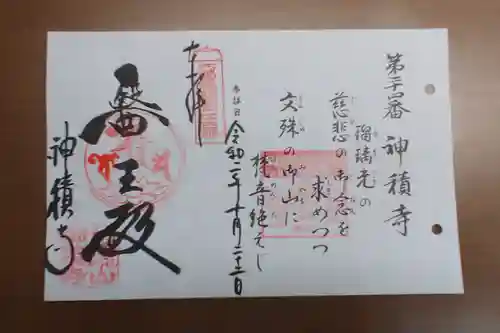 第二十番 神積寺
瑠璃光の
慈悲の御念を
求めつつ
文殊の御山に
梵音絶えじ
参拝日 令和二年十月二十二日
奉拝
醫王殿
神積寺